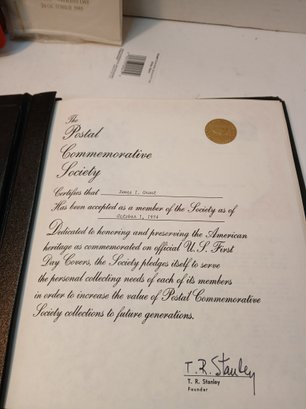 24 OCTOBER 1995
The
Postal
Commemorative
Society
Certifies that James I. Grant
Has been accepted as a member of the Society as of
October 1, 1974
Dedicated to honoring and preserving the American
heritage as commemorated on official U.S. First
Day Covers, the Society pledges itself to serve
the personal collecting needs of each of its members
in order to increase the value of Postal Commemorative
Society collections to future generations.
T. R. Stanley
T. R. Stanley
Founder